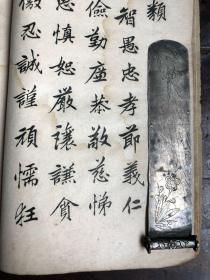 類
智愚忠孝節義仁
儉勤座恭敬慈悌
慎恕厳讓謙貪
忍誠謹頑懦狂